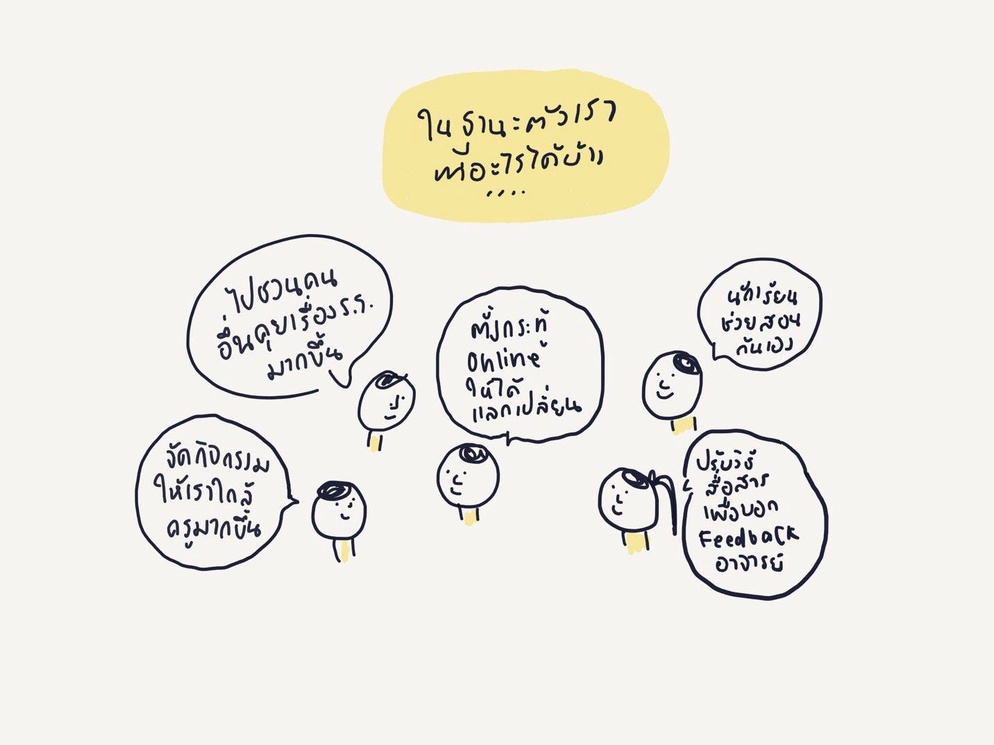 ในฐานะตัวเรา
ทำอะไรได้บ้าง
....
ไปชวนคน
อื่นคุยเรื่องร.ร.
มากขึ้น
ตั้งกระทู้
Online
ให้ได้
แลกเปลี่ยน
นักเรียน
ช่วยสอน
กันเอง
จัดกิจกรรม
ให้เราใกล้
ครูมากขึ้น
ปรับวิธี
สื่อสาร
เพื่อบอก
Feedback
อาจารย์